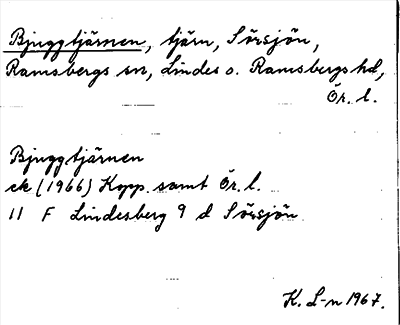 Bjuggtjärnen, tjärn, Sörsjön,
Ramsbergs sn, Lindes o. Ramsbergs hd,
Ör. l.
Bjuggtjärnen
ek (1966) Kopp. samt Ör. l.
11 F Lindesberg 9 d Sörsjön
K. L-n 1967.